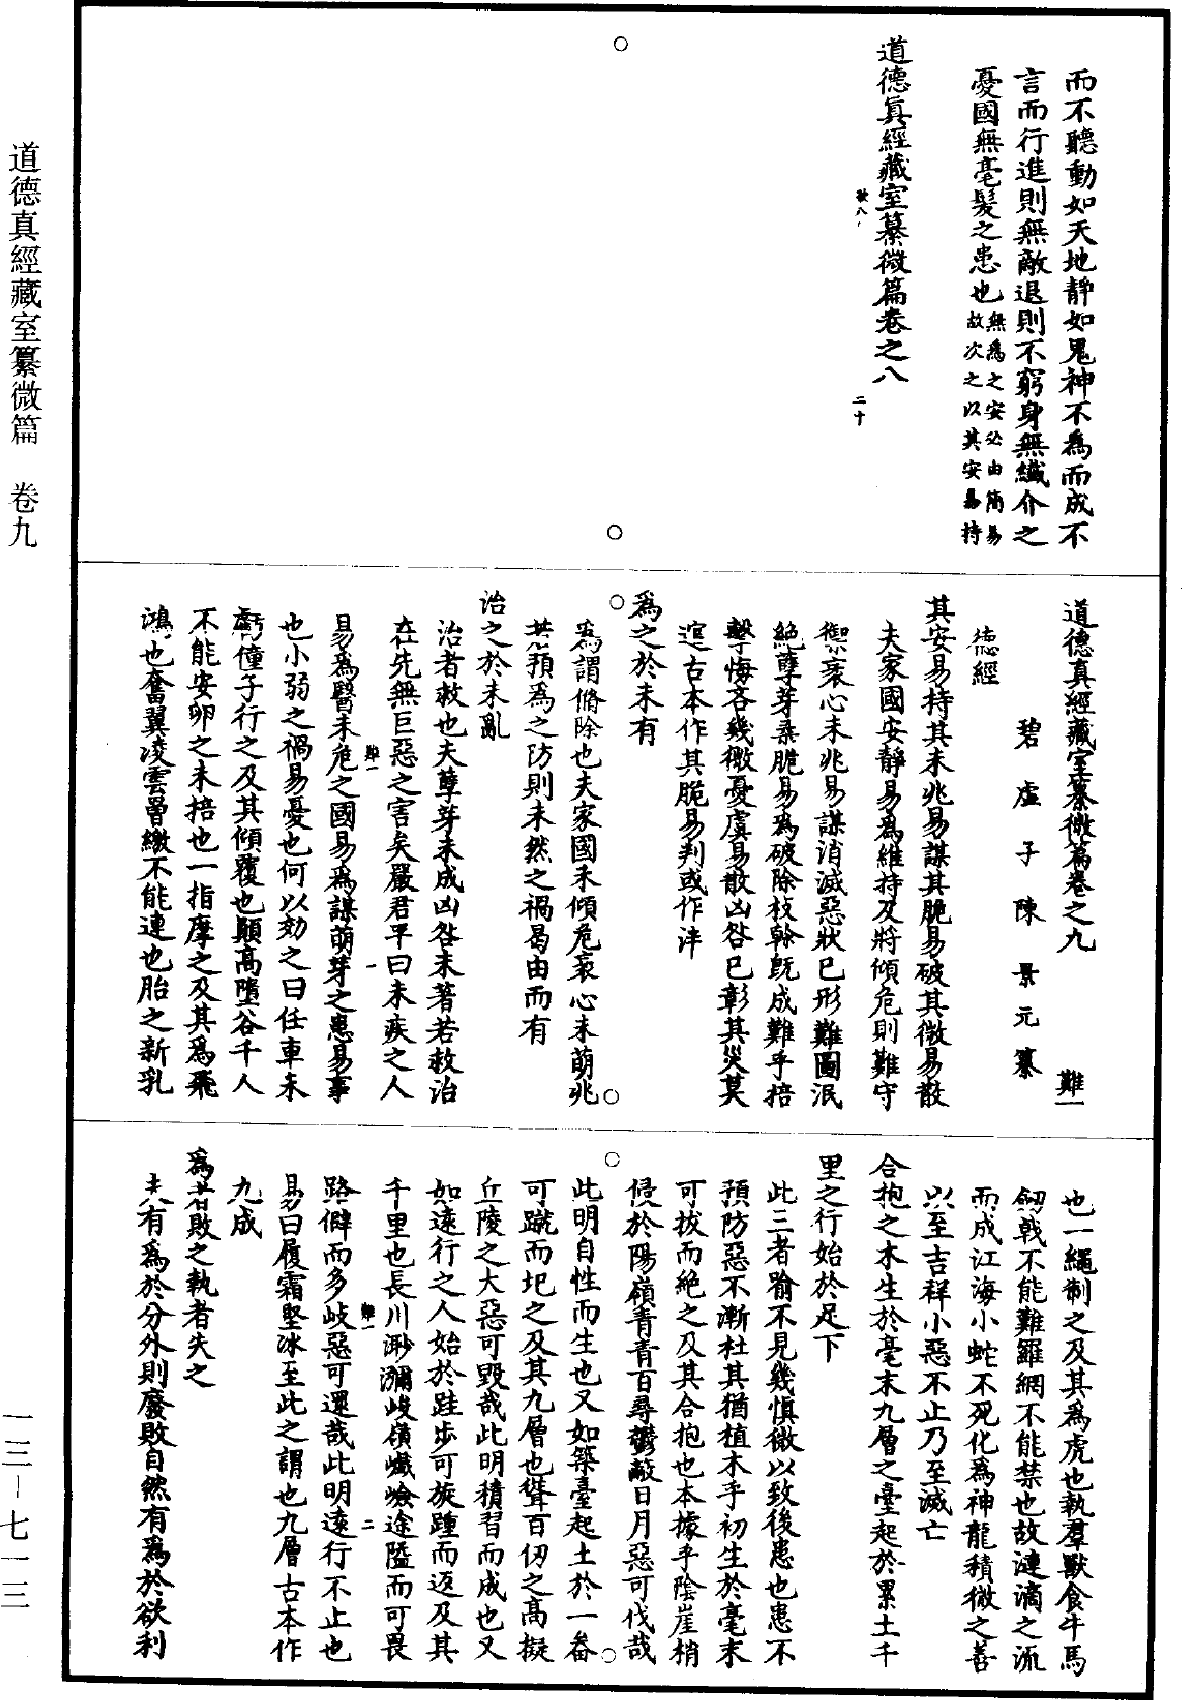 道德真經藏室纂微篇　卷九
一三—七一三
而不聽動如天地靜如鬼神不為而成不
言而行進則無敵退則不窮身無纖介之
憂國無毫髮之患也無爲之安必由簡易
故次之以其安易持
道德真經藏室纂微篇卷之八
二十
道德真經藏室纂微篇卷之九　難一
碧虛子陳景元纂
德經
其安易持其未兆易謀其脆易破其微易散
夫家國安靜易為維持及將傾危則難守
禦衺心未兆易謀消滅惡狀已形難圖泯
絕孽芽柔脆易為破除枝榦旣成難乎掊
擊悔吝幾微憂虞易散凶咎已彰其災莫
逭古本作其脆易判或作泮
爲之於未有
爲謂脩除也夫家國未傾危衺心未萌兆
若預為之防則未然之禍曷由而有
治之於未亂
治者救也夫孽芽未成凶咎未著若救治
在先無巨惡之害矣嚴君平曰未疾之人
易爲醫未危之國易爲謀萌芽之患易事
難一　一
也小弱之禍易憂也何以効之曰任車未
虧僮子行之及其傾覆也顛高墮谷千人
不能安卵之未掊也一指摩之及其爲飛
鴻也奮翼凌雲罾繳不能連也胎之新乳
也一繩制之及其為虎也執羣獸食牛馬
劒戟不能難羅網不能禁也故漣滴之流
而成江海小蛇不死化為神龍積微之善
以至吉祥小惡不止乃至滅亡
合抱之木生於毫末九層之臺起於累土千
里之行始於足下
此三者喻不見幾慎微以致後患也患不
預防惡不漸杜其猶植木乎初生於毫末
可拔而絕之及其合抱也本據乎陰崖梢
侵於陽嶺青青百尋鬱蔽日月惡可伐哉
此明自性而生也又如築臺起土於一畚
可蹴而圯之及其九層也聳百仞之高擬
丘陵之大惡可毀哉此明積習而成也又
如遠行之人始於跬步可旋踵而返及其
千里也長川渺瀰峻嶺巇嶮途隘而可畏
難一　二
路僻而多岐惡可還哉此明遠行不止也
易曰履霜堅冰至此之謂也九層古本作
九成
為者敗之執者失之
夫有爲於分外則廢敗自然有爲於欲利